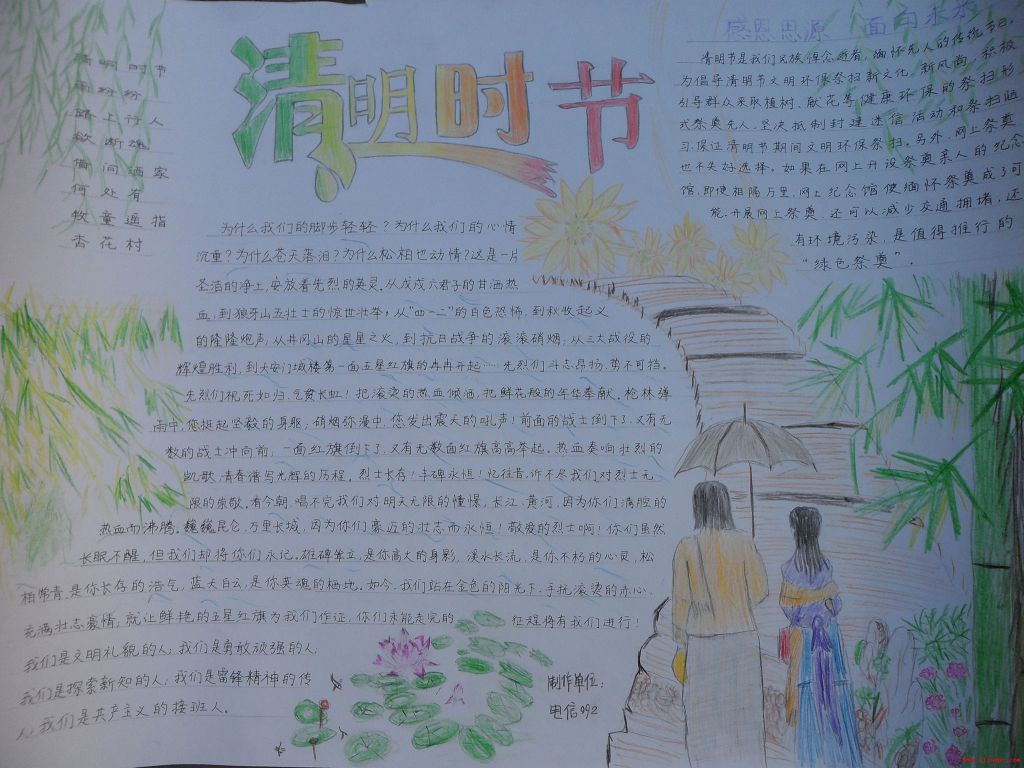 清明时节
清明时节
雨纷纷
路上行人
欲断魂
借问酒家
何处有
牧童遥指
杏花村
感恩思源 面向未来
清明节是我们民族悼念逝者,缅怀先人的传统节日,
为倡导清明节文明环保祭扫新文化、新风尚,积极
引导群众采取植树、献花等健康环保的祭扫形
式祭奠先人,坚决抵制封建迷信活动和祭扫陋
习,保证清明节期间文明环保祭扫。另外,网上祭奠
也不失好选择。如果在网上开设祭奠亲人的纪念
馆,即使相隔万里,网上纪念馆使缅怀祭奠成了可
能,开展网上祭奠 还可以减少交通拥堵,还
有环境污染,是值得推行的
“绿色祭奠”。
为什么我们的脚步轻轻?为什么我们的心情
沉重?为什么苍天落泪?为什么松柏也动情?这是一片
圣洁的净土,安放着先烈的英灵,从戊戌六君子的甘洒热
血,到狼牙山五壮士的惊世壮举,从“四一二”的白色恐怖,到秋收起义
的隆隆炮声,从井冈山的星星之火,到抗日战争的滚滚硝烟;从三大战役的
辉煌胜利,到天安门城楼第一面五星红旗的冉冉升起……先烈们斗志昂扬,势不可挡。
先烈们视死如归,气贯长虹!把滚烫的热血倾洒,把鲜花般的年华奉献。枪林弹
雨中,您挺起坚毅的身躯,硝烟弥漫中,您发出震天的吼声!前面的战士倒下了,又有无
数的战士冲向前,一面红旗倒下了,又有无数面红旗高高举起。热血奏响壮烈的
凯歌,青春谱写光辉的历程。烈士长存!丰碑永恒!忆往昔,诉不尽我们对烈士无
限的崇敬,看今朝,唱不完我们对明天无限的憧憬,长江、黄河,因为你们满腔的
热血而沸腾。巍巍昆仑,万里长城,因为你们豪迈的壮志而永恒!敬爱的烈士啊!你们虽然
长眠不醒,但我们却将你们永记。雄碑耸立,是你高大的身影,溪水长流,是你不朽的心灵,松
柏常青,是你长存的浩气,蓝天白云,是你英魂的栖地。如今,我们站在金色的阳光下,手扰滚烫的赤心,
充满壮志豪情,就让鲜艳的五星红旗为我们作证,你们未能走完的 征程将有我们进行!
我们是文明礼貌的人;我们是勇敢顽强的人;
我们是探索新知的人;我们是雷锋精神的传
人;我们是共产主义的接班人。
制作单位:
电信092